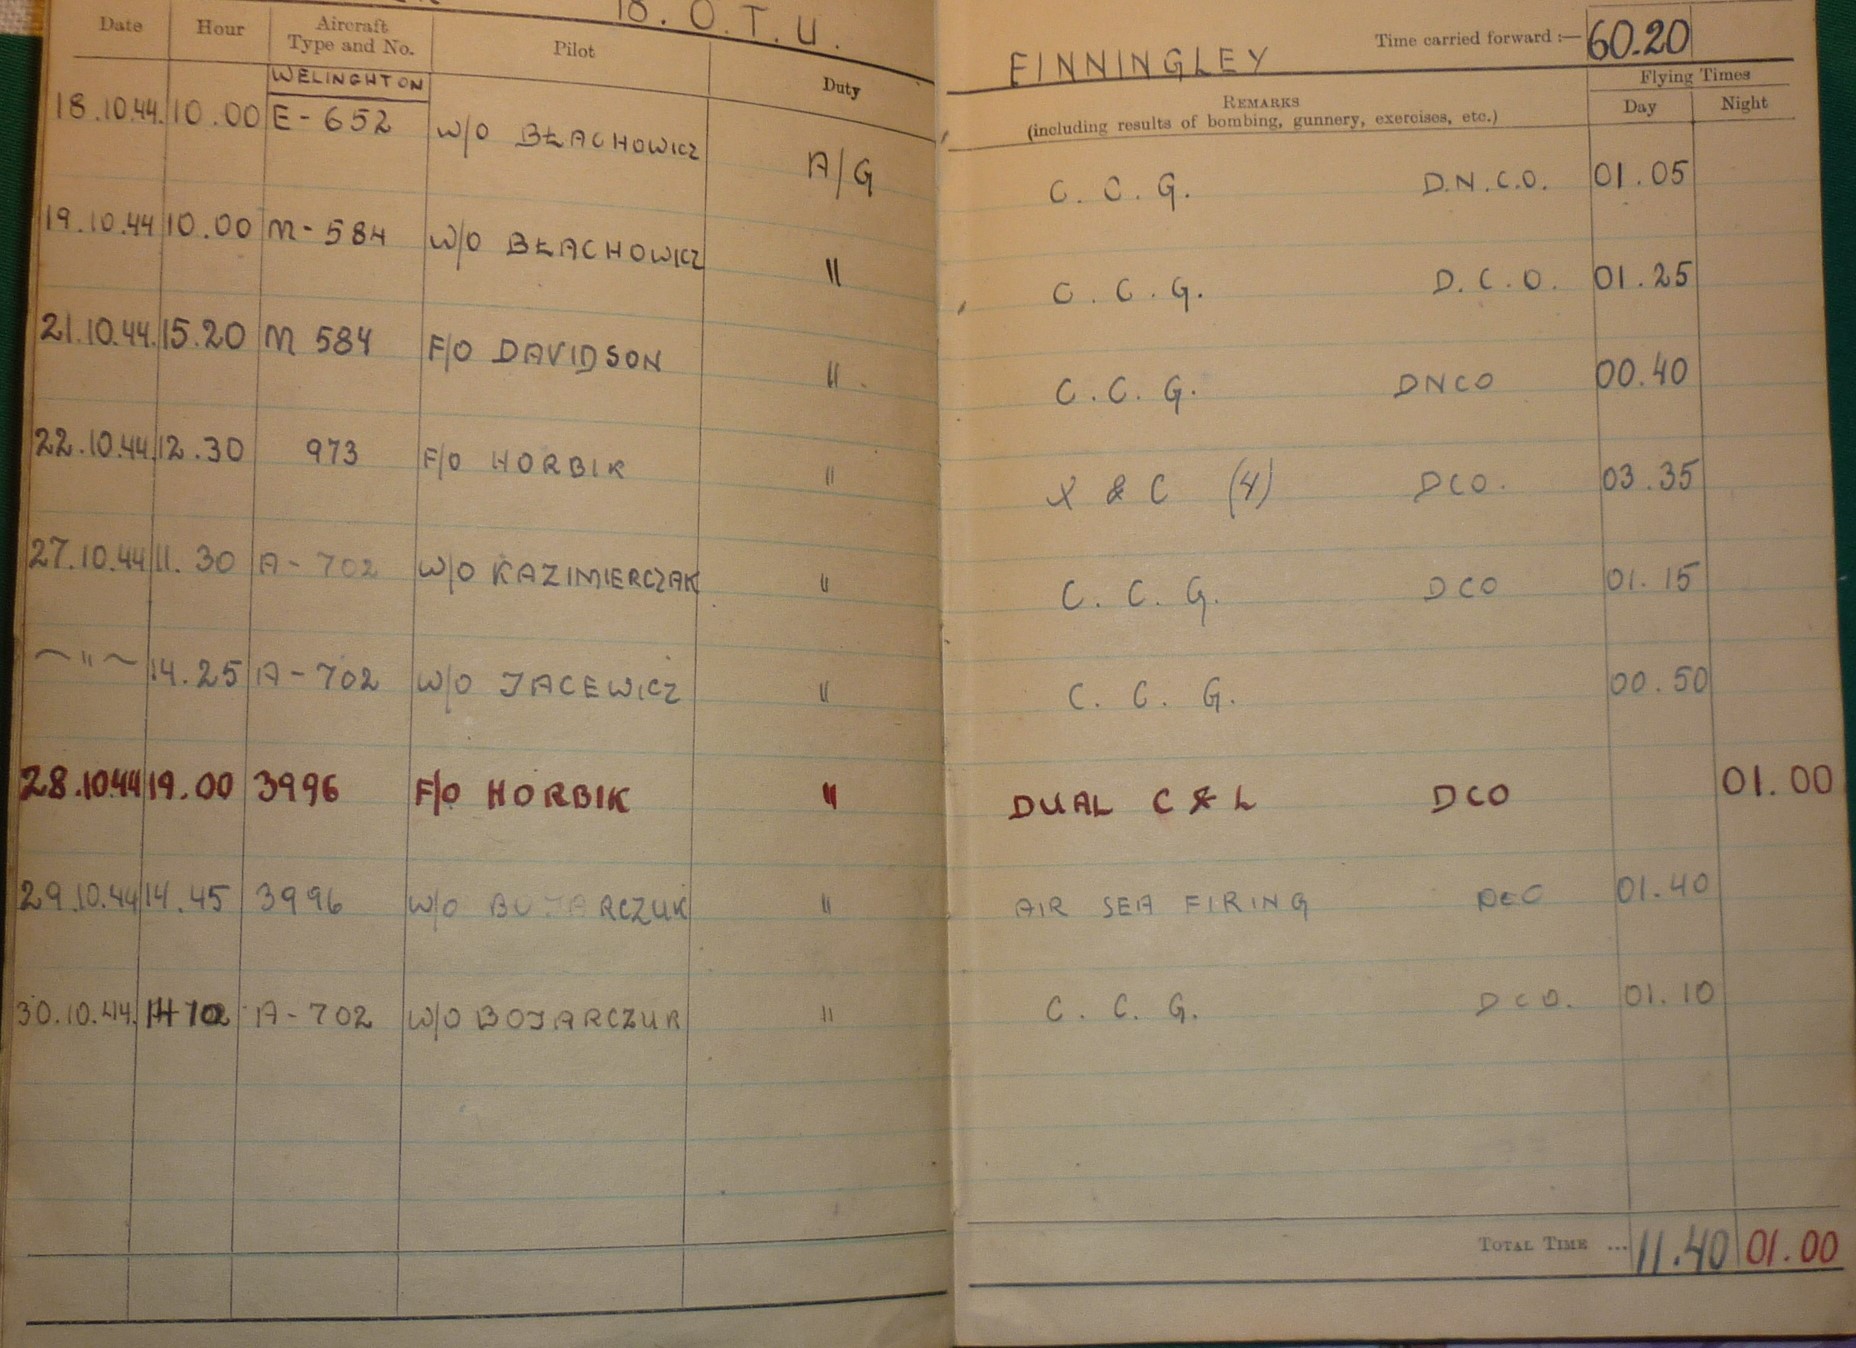 18. O. T. U. FINNINGLEY Time carried forward :— 60.20
Date Hour Aircraft Type and No. Pilot Duty REMARKS (including results of bombing, gunnery, exercises, etc.) Flying Times Day Night
WELINGHTON
18.10.44. 10.00 E - 652 W/O BŁACHOWICZ A/G C. C. G. D.N.C.O. 01.05
19.10.44 10.00 M - 584 W/O BŁACHOWICZ " C. C. G. D.C.O. 01.25
21.10.44. 15.20 M 584 F/O DAVIDSON " C. C. G. DNCO 00.40
22.10.44. 12.30 973 F/O HORBIK " X & C (4) DCO. 03.35
27.10.44 11.30 A - 702 W/O KAZIMIERCZAK " C. C. G. DCO 01.15
~ " ~ 14.25 A - 702 W/O JACEWICZ " C. C. G. 00.50
28.10.44 19.00 3996 F/O HORBIK " DUAL C & L DCO 01.00
29.10.44 14.45 3996 W/O BOJARCZUK " AIR SEA FIRING DCO 01.40
30.10.44. A - 702 W/O BOJARCZUK " C. C. G. DCO. 01.10
TOTAL TIME ... 11.40 01.00